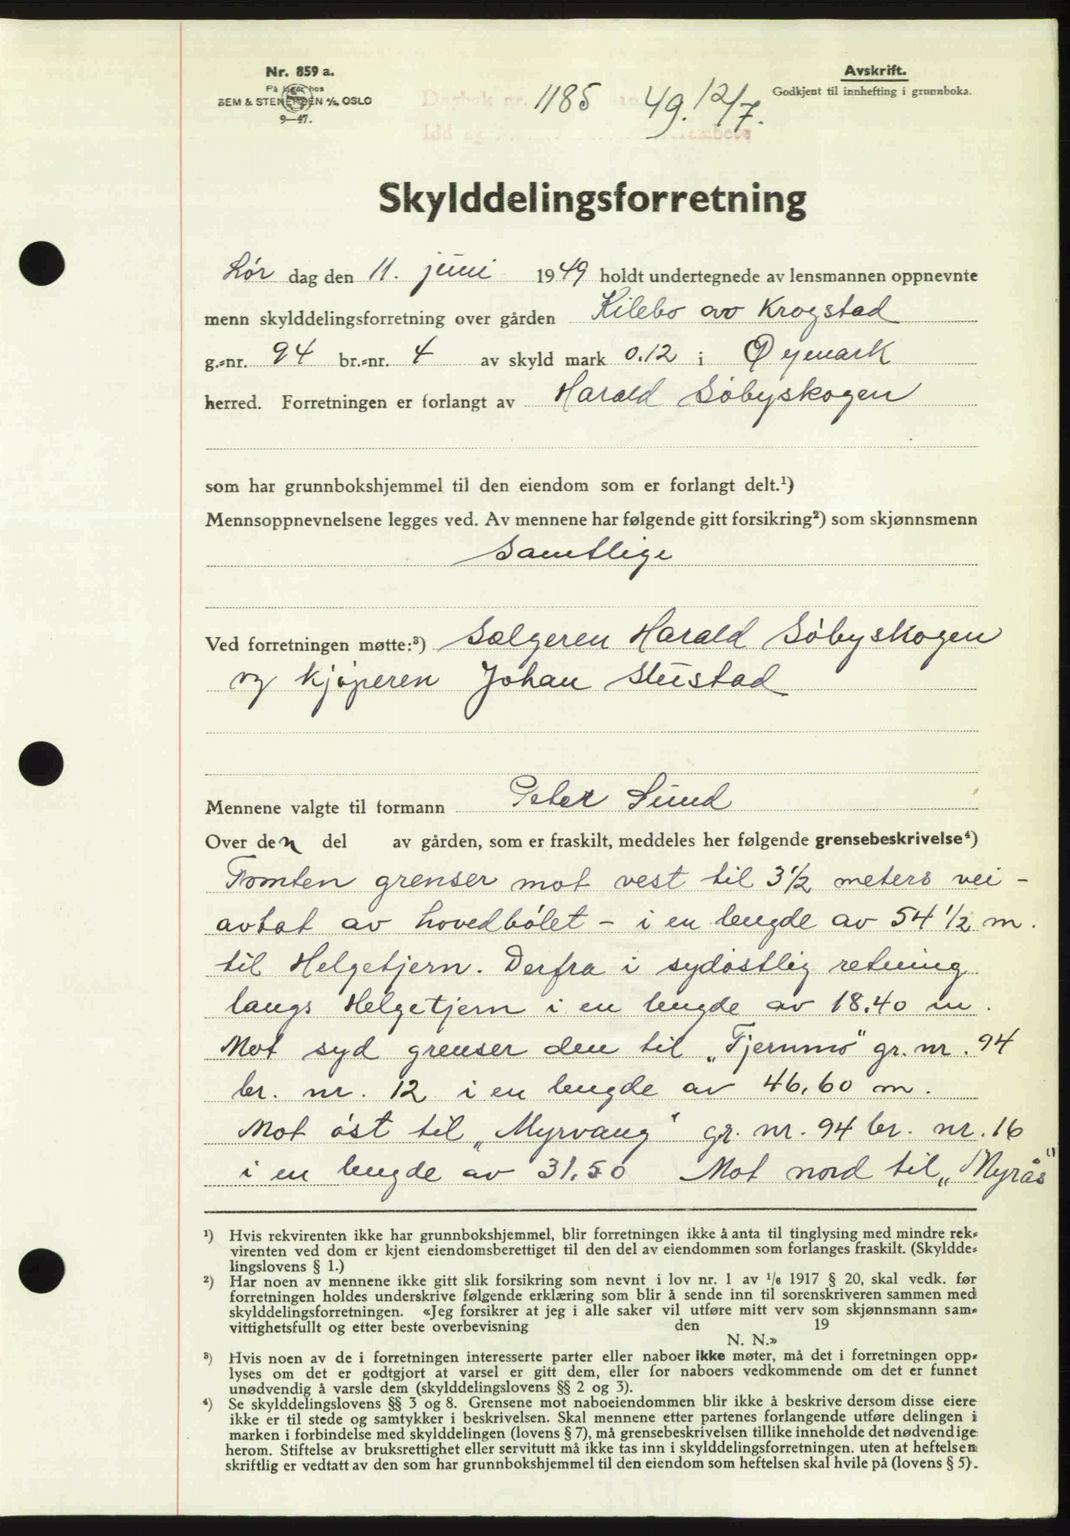 Nr. 859 a.
På lager hos
SEM & STENERSEN A/S, OSLO
9—47.
Avskrift.
Godkjent til innhefting i grunnboka.
Dagbok nr. 1185 49. 12/7.
Idd og
Skylddelingsforretning
Lør dag den 11. juni 1949 holdt undertegnede av lensmannen oppnevnte
menn skylddelingsforretning over gården Kilebo av Krogstad
g.-nr. 94 br.-nr. 4 av skyld mark 0.12 i Øymark
herred. Forretningen er forlangt av Harald Søbyskogen
som har grunnbokshjemmel til den eiendom som er forlangt delt.¹)
Mennsoppnevnelsene legges ved. Av mennene har følgende gitt forsikring²) som skjønnsmenn
Samtlige
Ved forretningen møtte:³) Selgeren Harald Søbyskogen
og kjøperen Johan Slustad
Mennene valgte til formann Peter Lund
Over den del av gården, som er fraskilt, meddeles her følgende grensebeskrivelse⁴)
Tomten grenser mot vest til 3½ meters vei –
avtat av hovedbølet – i en lengde av 54 ½ m.
til Helgetjern. Derfra i sydøstlig retning
langs Helgetjern i en lengde av 18.40 m.
Mot syd grenser den til „Tjernmo" gr. nr. 94
br. nr. 12 i en lengde av 46.60 m.
Mot øst til „Myrvang" gr. nr. 94 br. nr. 16
i en lengde av 31.50 Mot nord til „Myrås"
¹) Hvis rekvirenten ikke har grunnbokshjemmel, blir forretningen ikke å anta til tinglysing med mindre rek-
virenten ved dom er kjent eiendomsberettiget til den del av eiendommen som forlanges fraskilt. (Skyldde-
lingslovens § 1.)
²) Har noen av mennene ikke gitt slik forsikring som nevnt i lov nr. 1 av 1/6 1917 § 20, skal vedk. før
forretningen holdes underskrive følgende erklæring som blir å sende inn til sorenskriveren sammen med
skylddelingsforretningen. «Jeg forsikrer at jeg i alle saker vil utføre mitt verv som skjønnsmann sam-
vittighetsfullt og etter beste overbevisning den 19
N. N.»
³) Hvis noen av de i forretningen interesserte parter eller naboer ikke møter, må det i forretningen opp-
lyses om det er godtgjort at varsel er gitt dem, eller for naboers vedkommende om det er funnet
unødvendig å varsle dem (skylddelingslovens §§ 2 og 3).
⁴) Se skylddelingslovens §§ 3 og 8. Grensene mot naboeiendommen blir ikke å beskrive dersom disse eiere
ikke er til stede og samtykker i beskrivelsen. Skal mennene etter partenes forlangende utføre delingen i
marken i forbindelse med skylddelingen (lovens § 7), må grensebeskrivelsen tillike inneholde det nødvendige
herom. Stiftelse av bruksrettighet eller servitutt må ikke tas inn i skylddelingsforretningen. uten at heftelsen
skriftlig er vedtatt av den som har grunnbokshjemmel til den eiendom som heftelsen skal hvile på (lovens § 5).